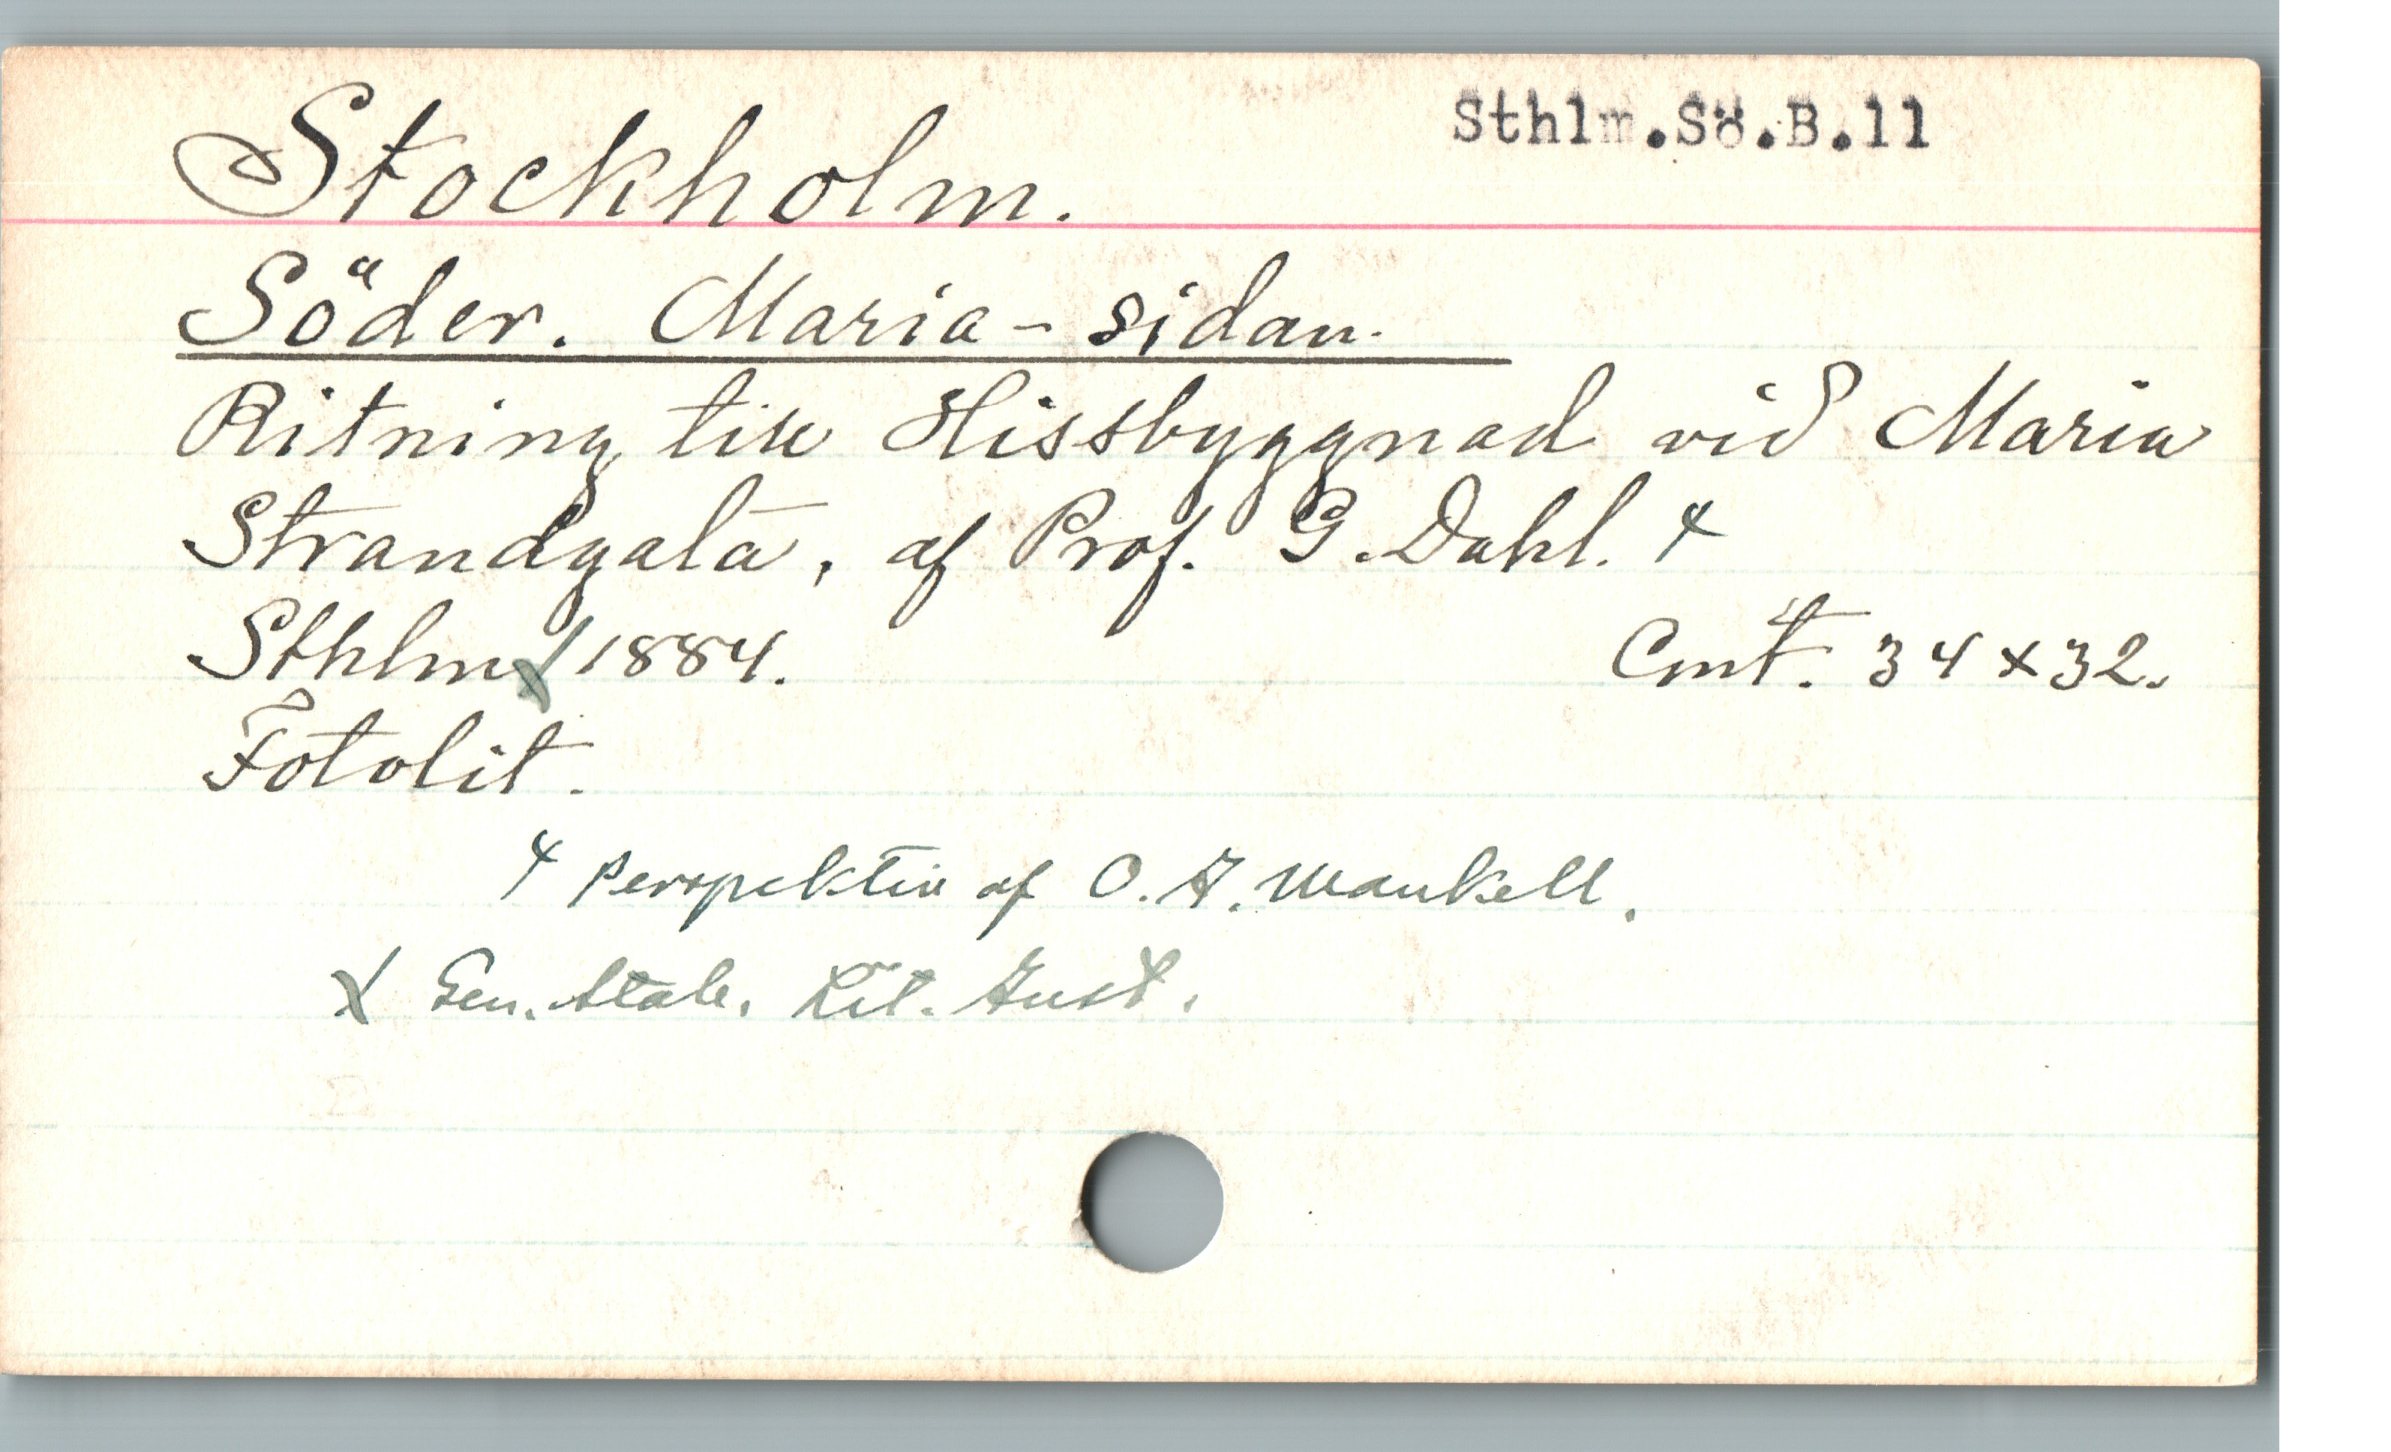 Sthlm.Sö.B.11
Stockholm.
Söder. Maria-sidan.
Ritning till Hissbyggnad vid Maria
Strandgata, af Prof. G. Dahl. +
Sthlm X 1884. Cmt. 34 x 32.
Fotolit.
+ Perspektiv af O. A. Mankell.
X Gen. Stab. Lit. Anst.